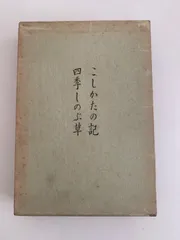 こしかたの記
四季しのぶ草